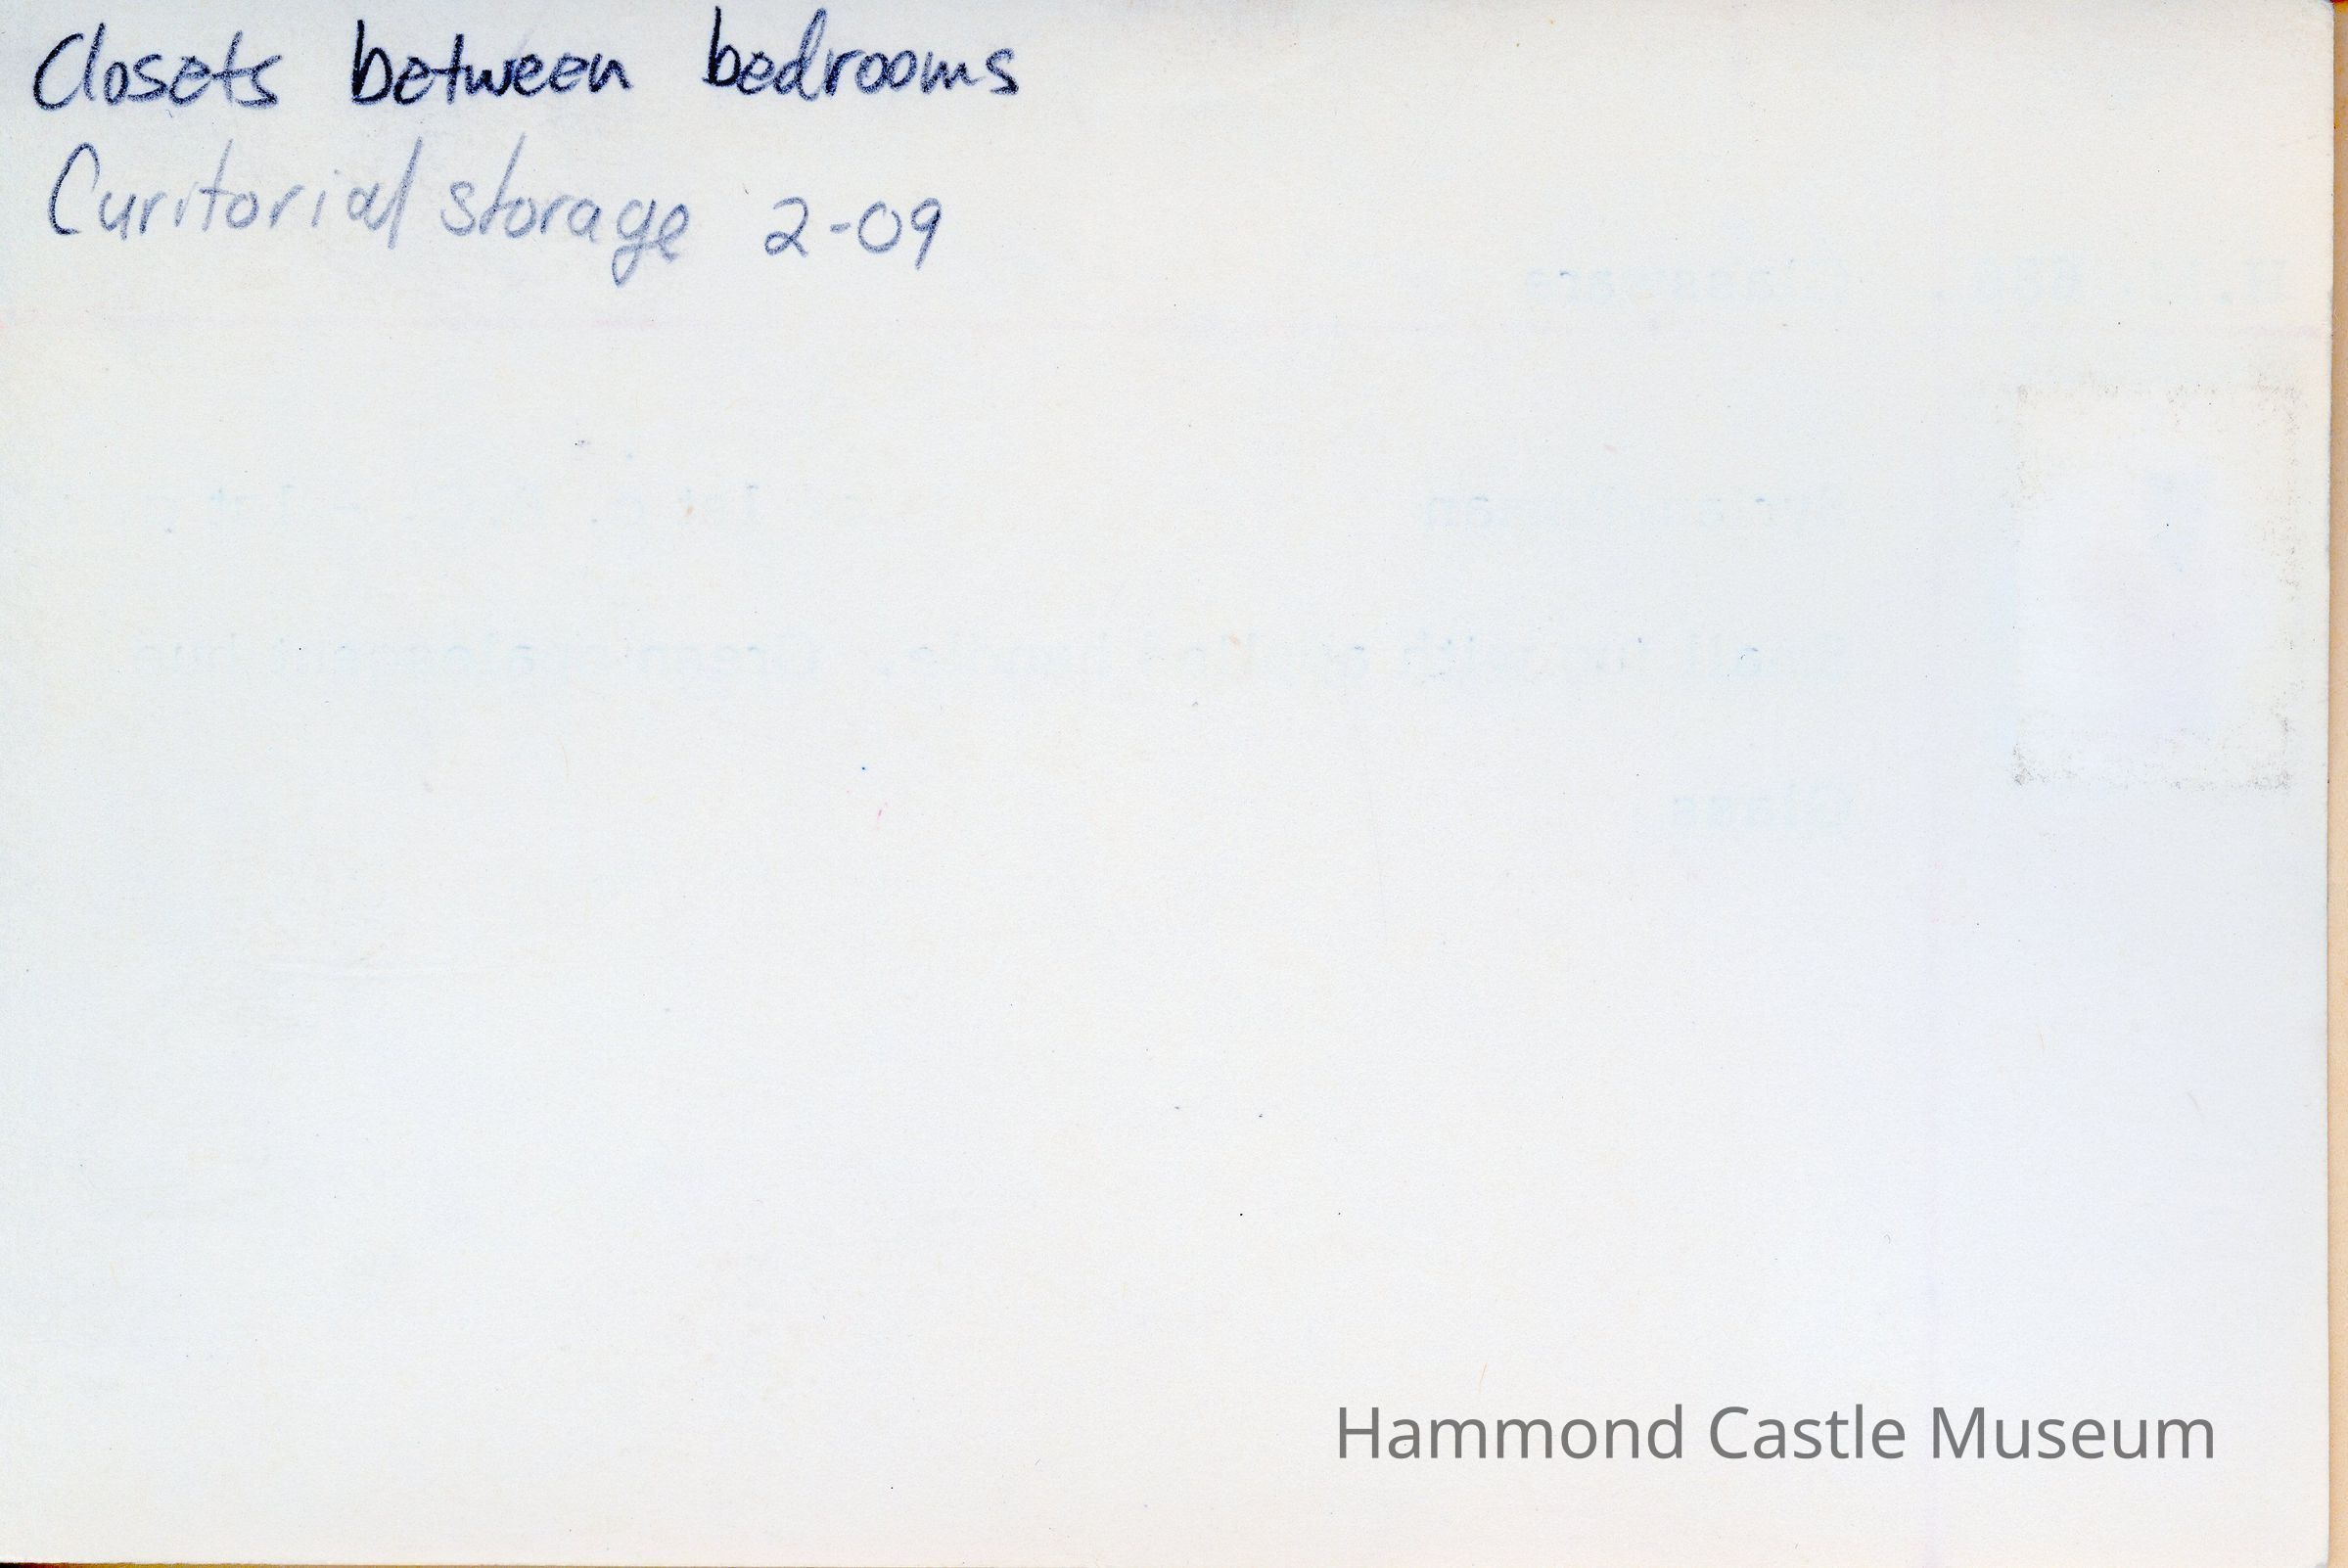 Closets between bedrooms
Curitorial storage 2-09
Hammond Castle Museum